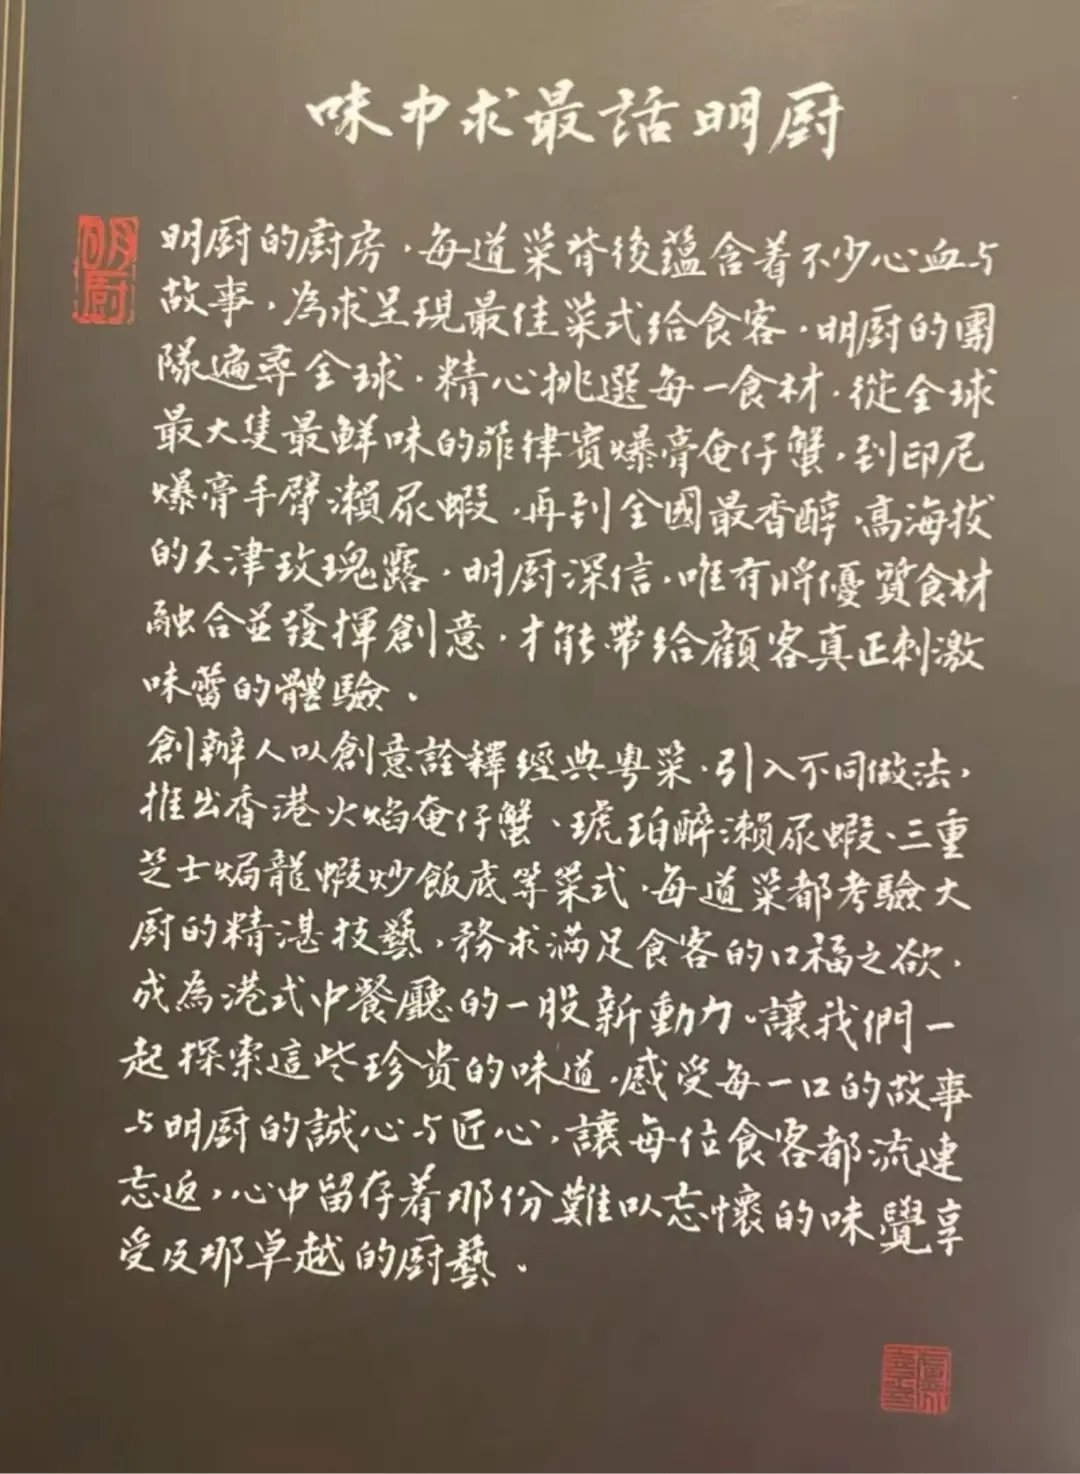 味巾求最話明厨
明厨
明厨的廚房，每道菜背後蘊含着不少心血与
故事，為求呈現最佳菜式給食客，明厨的團
隊遍尋全球，精心挑選每一食材，從全球
最大隻最鮮味的菲律賓爆膏奄仔蟹，到印尼
爆膏手臂瀨尿蝦，再到全國最香醇、高海拔
的天津玫瑰露，明厨深信，唯有將優質食材
融合並發揮創意，才能帶給顧客真正刺激
味蕾的體驗。
創辦人以創意詮釋經典粵菜，引入不同做法，
推出香港火焰奄仔蟹、琥珀醉瀨尿蝦、三重
芝士焗龍蝦炒飯底等菜式，每道菜都考驗大
厨的精湛技藝，務求滿足食客的口福之欲，
成為港式中餐廳的一股新動力。讓我們一
起探索這些珍贵的味道，感受每一口的故事
与明厨的誠心与匠心，讓每位食客都流連
忘返，心中留存着那份難以忘懷的味覺享
受及那卓越的厨藝。